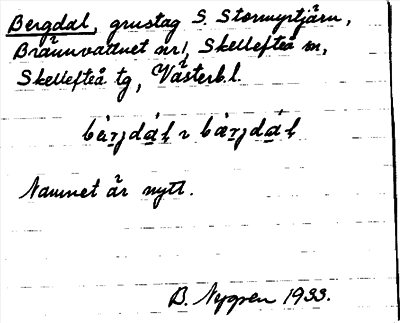 Bergdal, grustag S. Stormyrtjärn,
Brännvattnet nr 1, Skellefteå m,
Skellefteå tg, Västerb.l.
Namnet är nytt.
B. Nygren 1933.